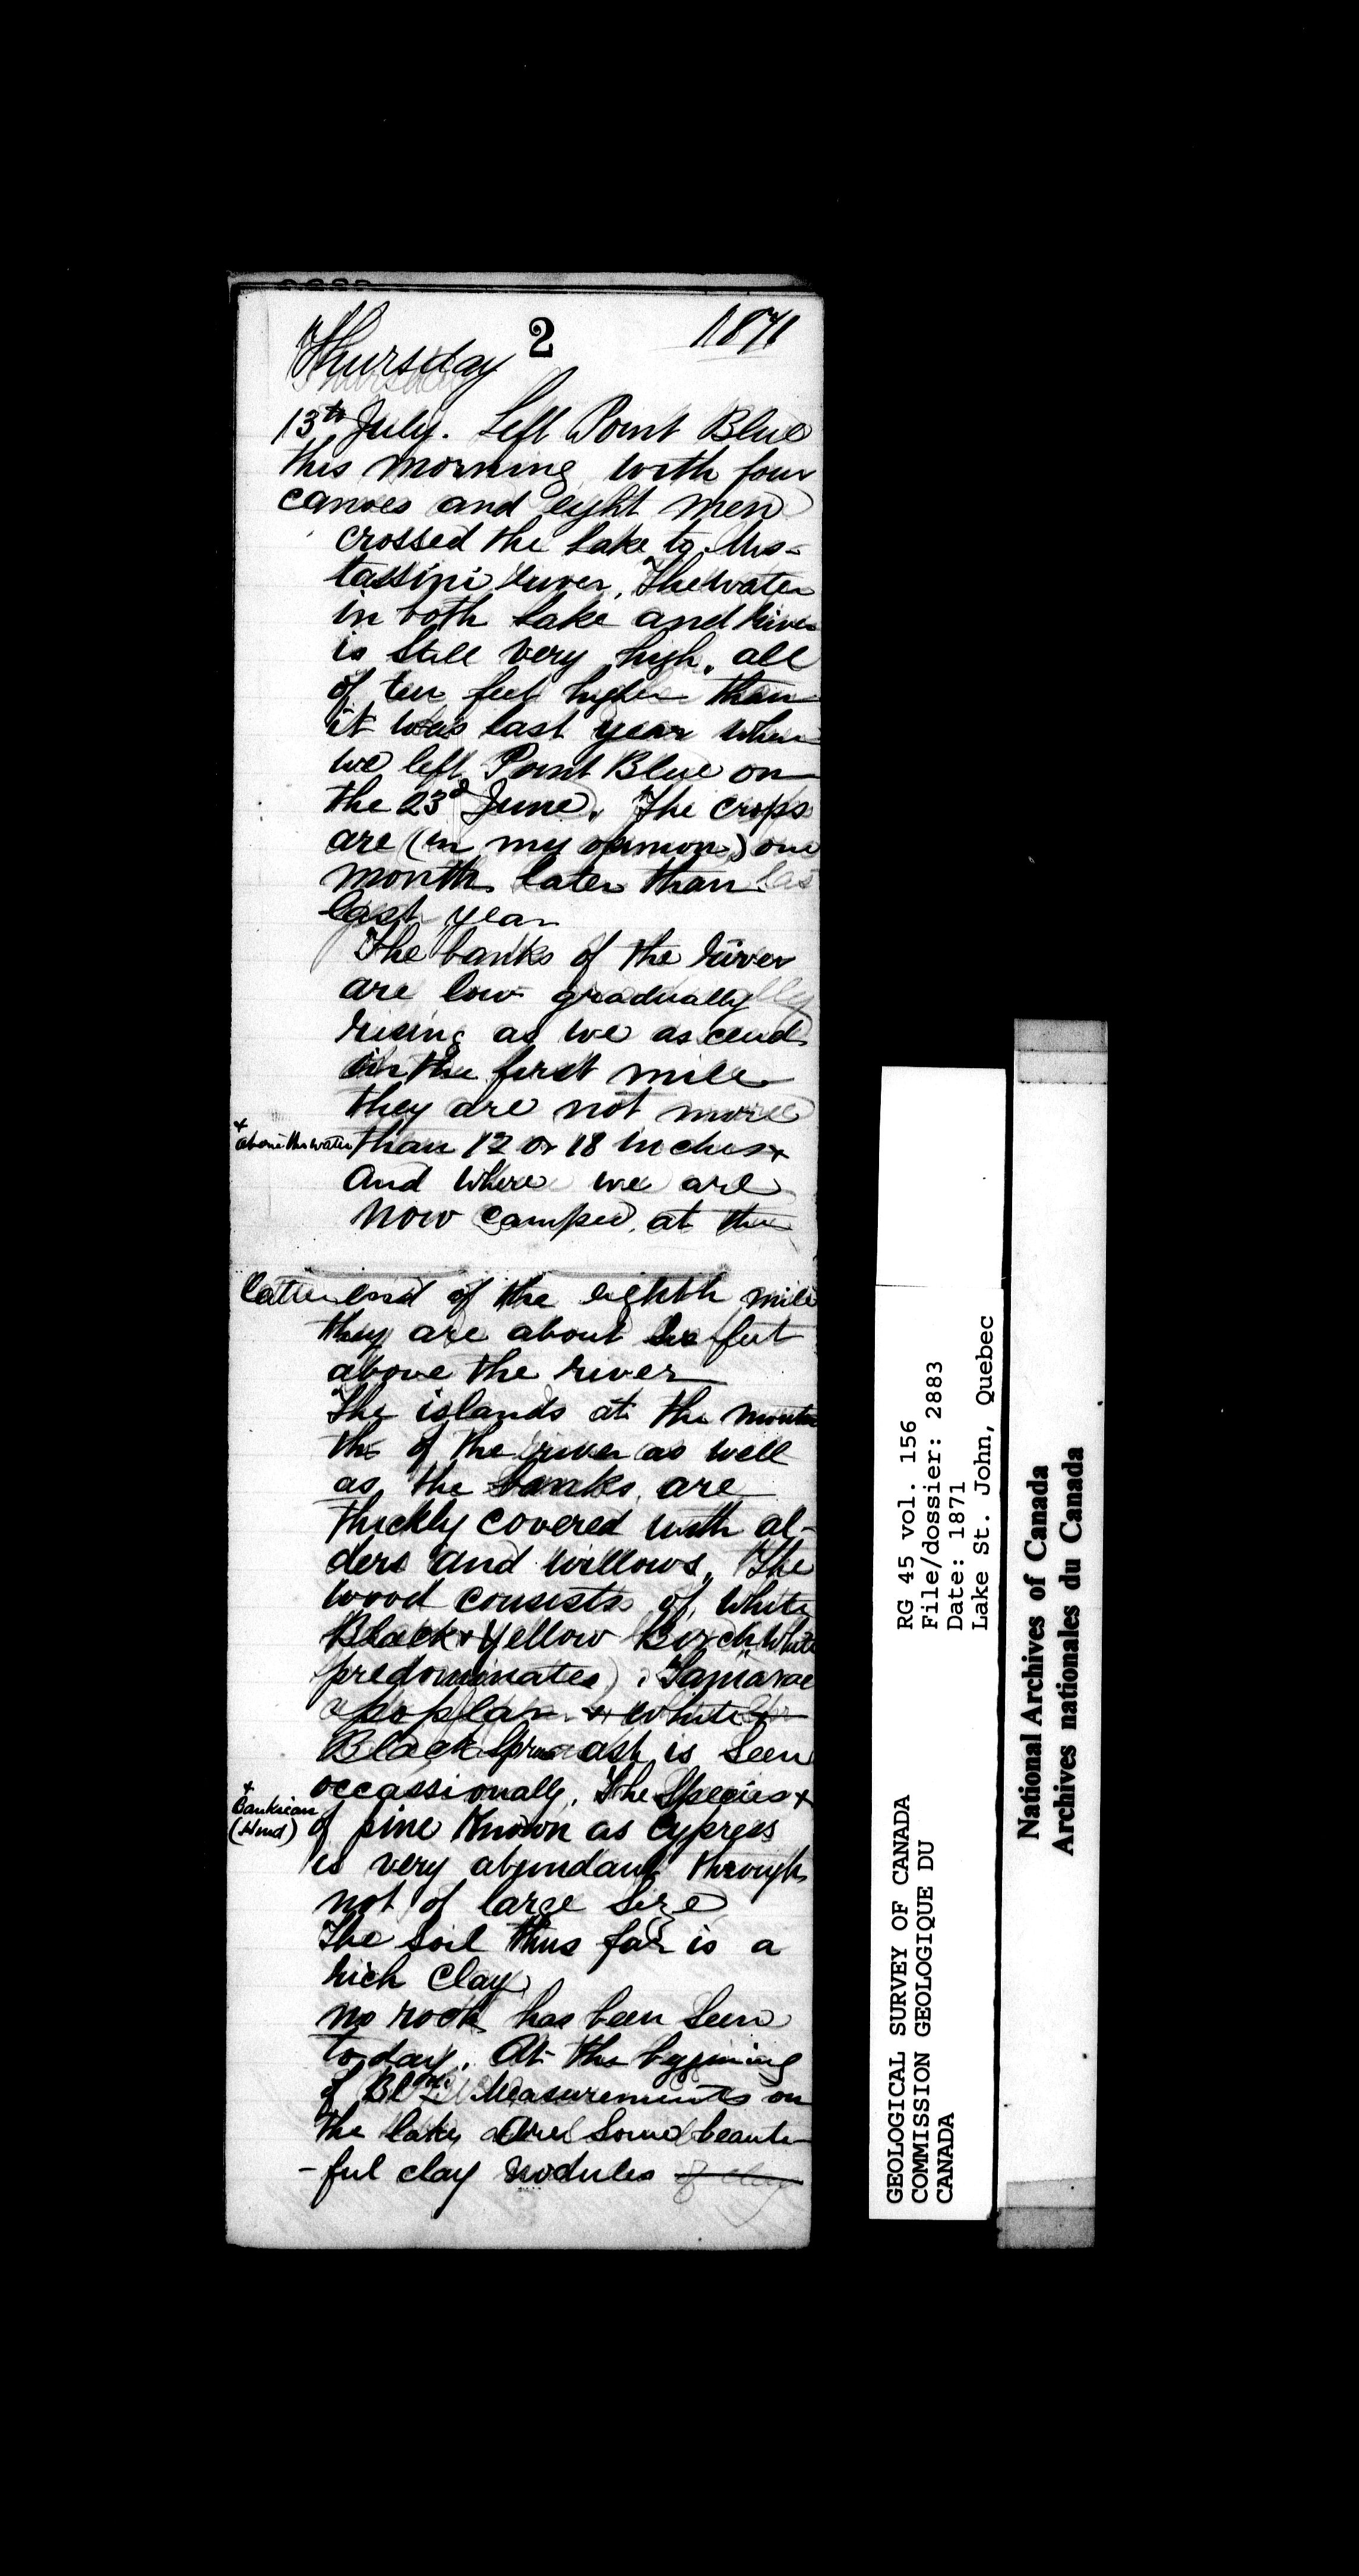 2
1871
Thursday
13th July. Left Point Blue
this morning with four
canoes and eight men
crossed the Lake to Mis-
tassini river. The water
in both Lake and River
is still very high. all
of ten feet higher than
it was last year when
we left Point Blue on
the 23d June. The crops
are (in my opinion) one
month later than las
last year
The banks of the river
are low gradually
rising as we ascend
in the first mile
they are not more
+
above the water
than 12 or 18 inches +
and where we are
now camped, at the
latter end of the eighth mile
they are about six feet
above the river
The islands at the mouth
the of the river as well
as the banks are
thickly covered with al-
ders and willows. The
wood consists of White
Black & Yellow Birch, White
predominates). Tamarac
poplar & white &
Black Spruce ash is seen
occassionally. The Species +
+
Banksian
(Hind)
of pine known as cypress
is very abundant through
not of large size
The soil thus far is a
rich clay
no rock has been seen
to day. At the
of Measurements on
the lake are some beauti-
-ful clay nodules of clay
GEOLOGICAL SURVEY OF CANADA
COMMISSION GEOLOGIQUE DU
CANADA
RG 45 vol. 156
File/dossier: 2883
Date: 1871
Lake St. John, Quebec
National Archives of Canada
Archives nationales du Canada